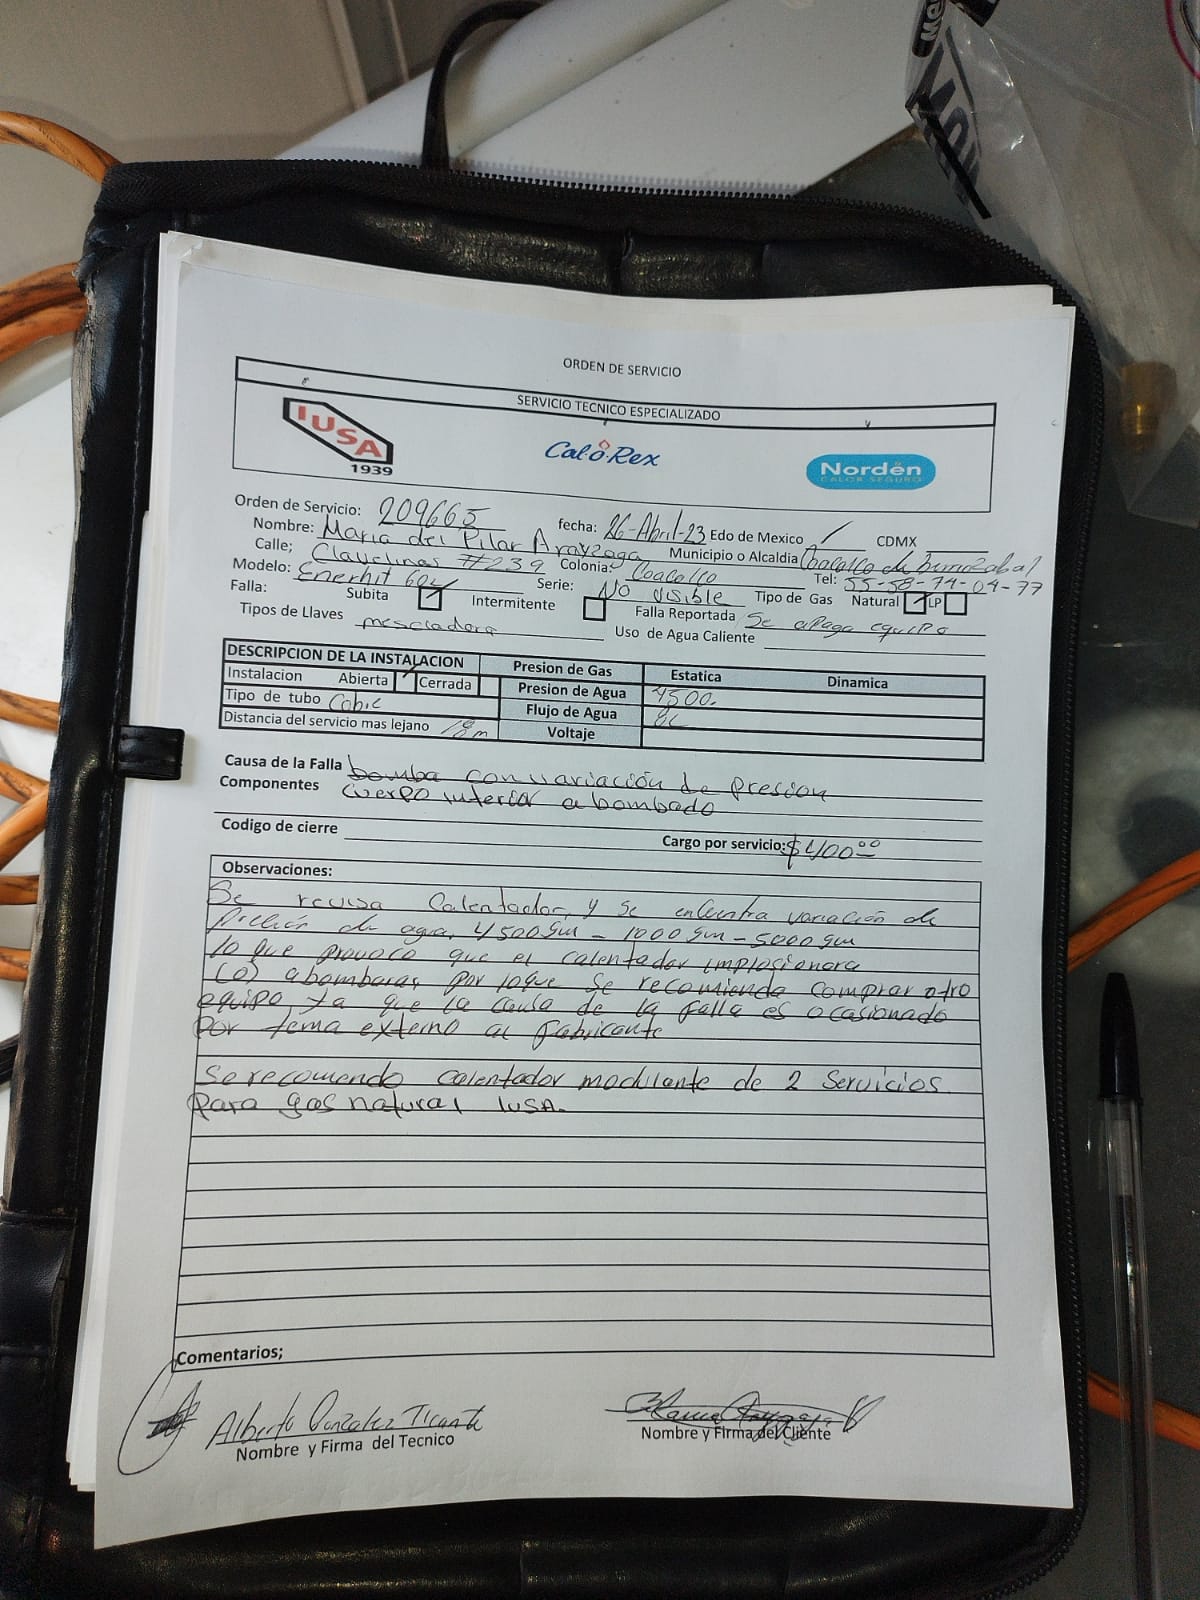 ORDEN DE SERVICIO
SERVICIO TECNICO ESPECIALIZADO
IUSA
1939
Cal-o-Rex
Nordën
CALOR SEGURO
Orden de Servicio: 209665 fecha: 26-Abril-23 Edo de Mexico / CDMX
Nombre: Maria del Pilar Arayzaga Municipio o Alcaldia Coacalco de
Calle; Clavelinas #239 Colonia: Coacalco Tel: 55-58-74-04-77
Modelo: Enerhit 60L Serie: No visible Tipo de Gas Natural LP
Falla: Subita Intermitente Falla Reportada Se apaga equipo
Tipos de Llaves mescladora Uso de Agua Caliente
DESCRIPCION DE LA INSTALACION Presion de Gas Estatica Dinamica
Instalacion Abierta Cerrada Presion de Agua 4500.
Tipo de tubo Cobre Flujo de Agua 8L
Distancia del servicio mas lejano m Voltaje
Causa de la Falla bomba con variación de presion
Componentes cuerpo interior abombado
Codigo de cierre Cargo por servicio: $400.00
Observaciones:
Se revisa Calentador, y se encuentra variación de
presión de agua, 4500gm - 1000 gm - 5000 gm
lo que provoco que el calentador implosionara
(o) abombaras, por loque se recomienda comprar otro
equipo ya que la causa de la falla es ocasionado
por tema externo al fabricante
Se recomendo calentador modulante de 2 Servicios
para gas natural IUSA.
Comentarios;
Alberto Gonzalez Ticante
Nombre y Firma del Tecnico
Nombre y Firma del Cliente